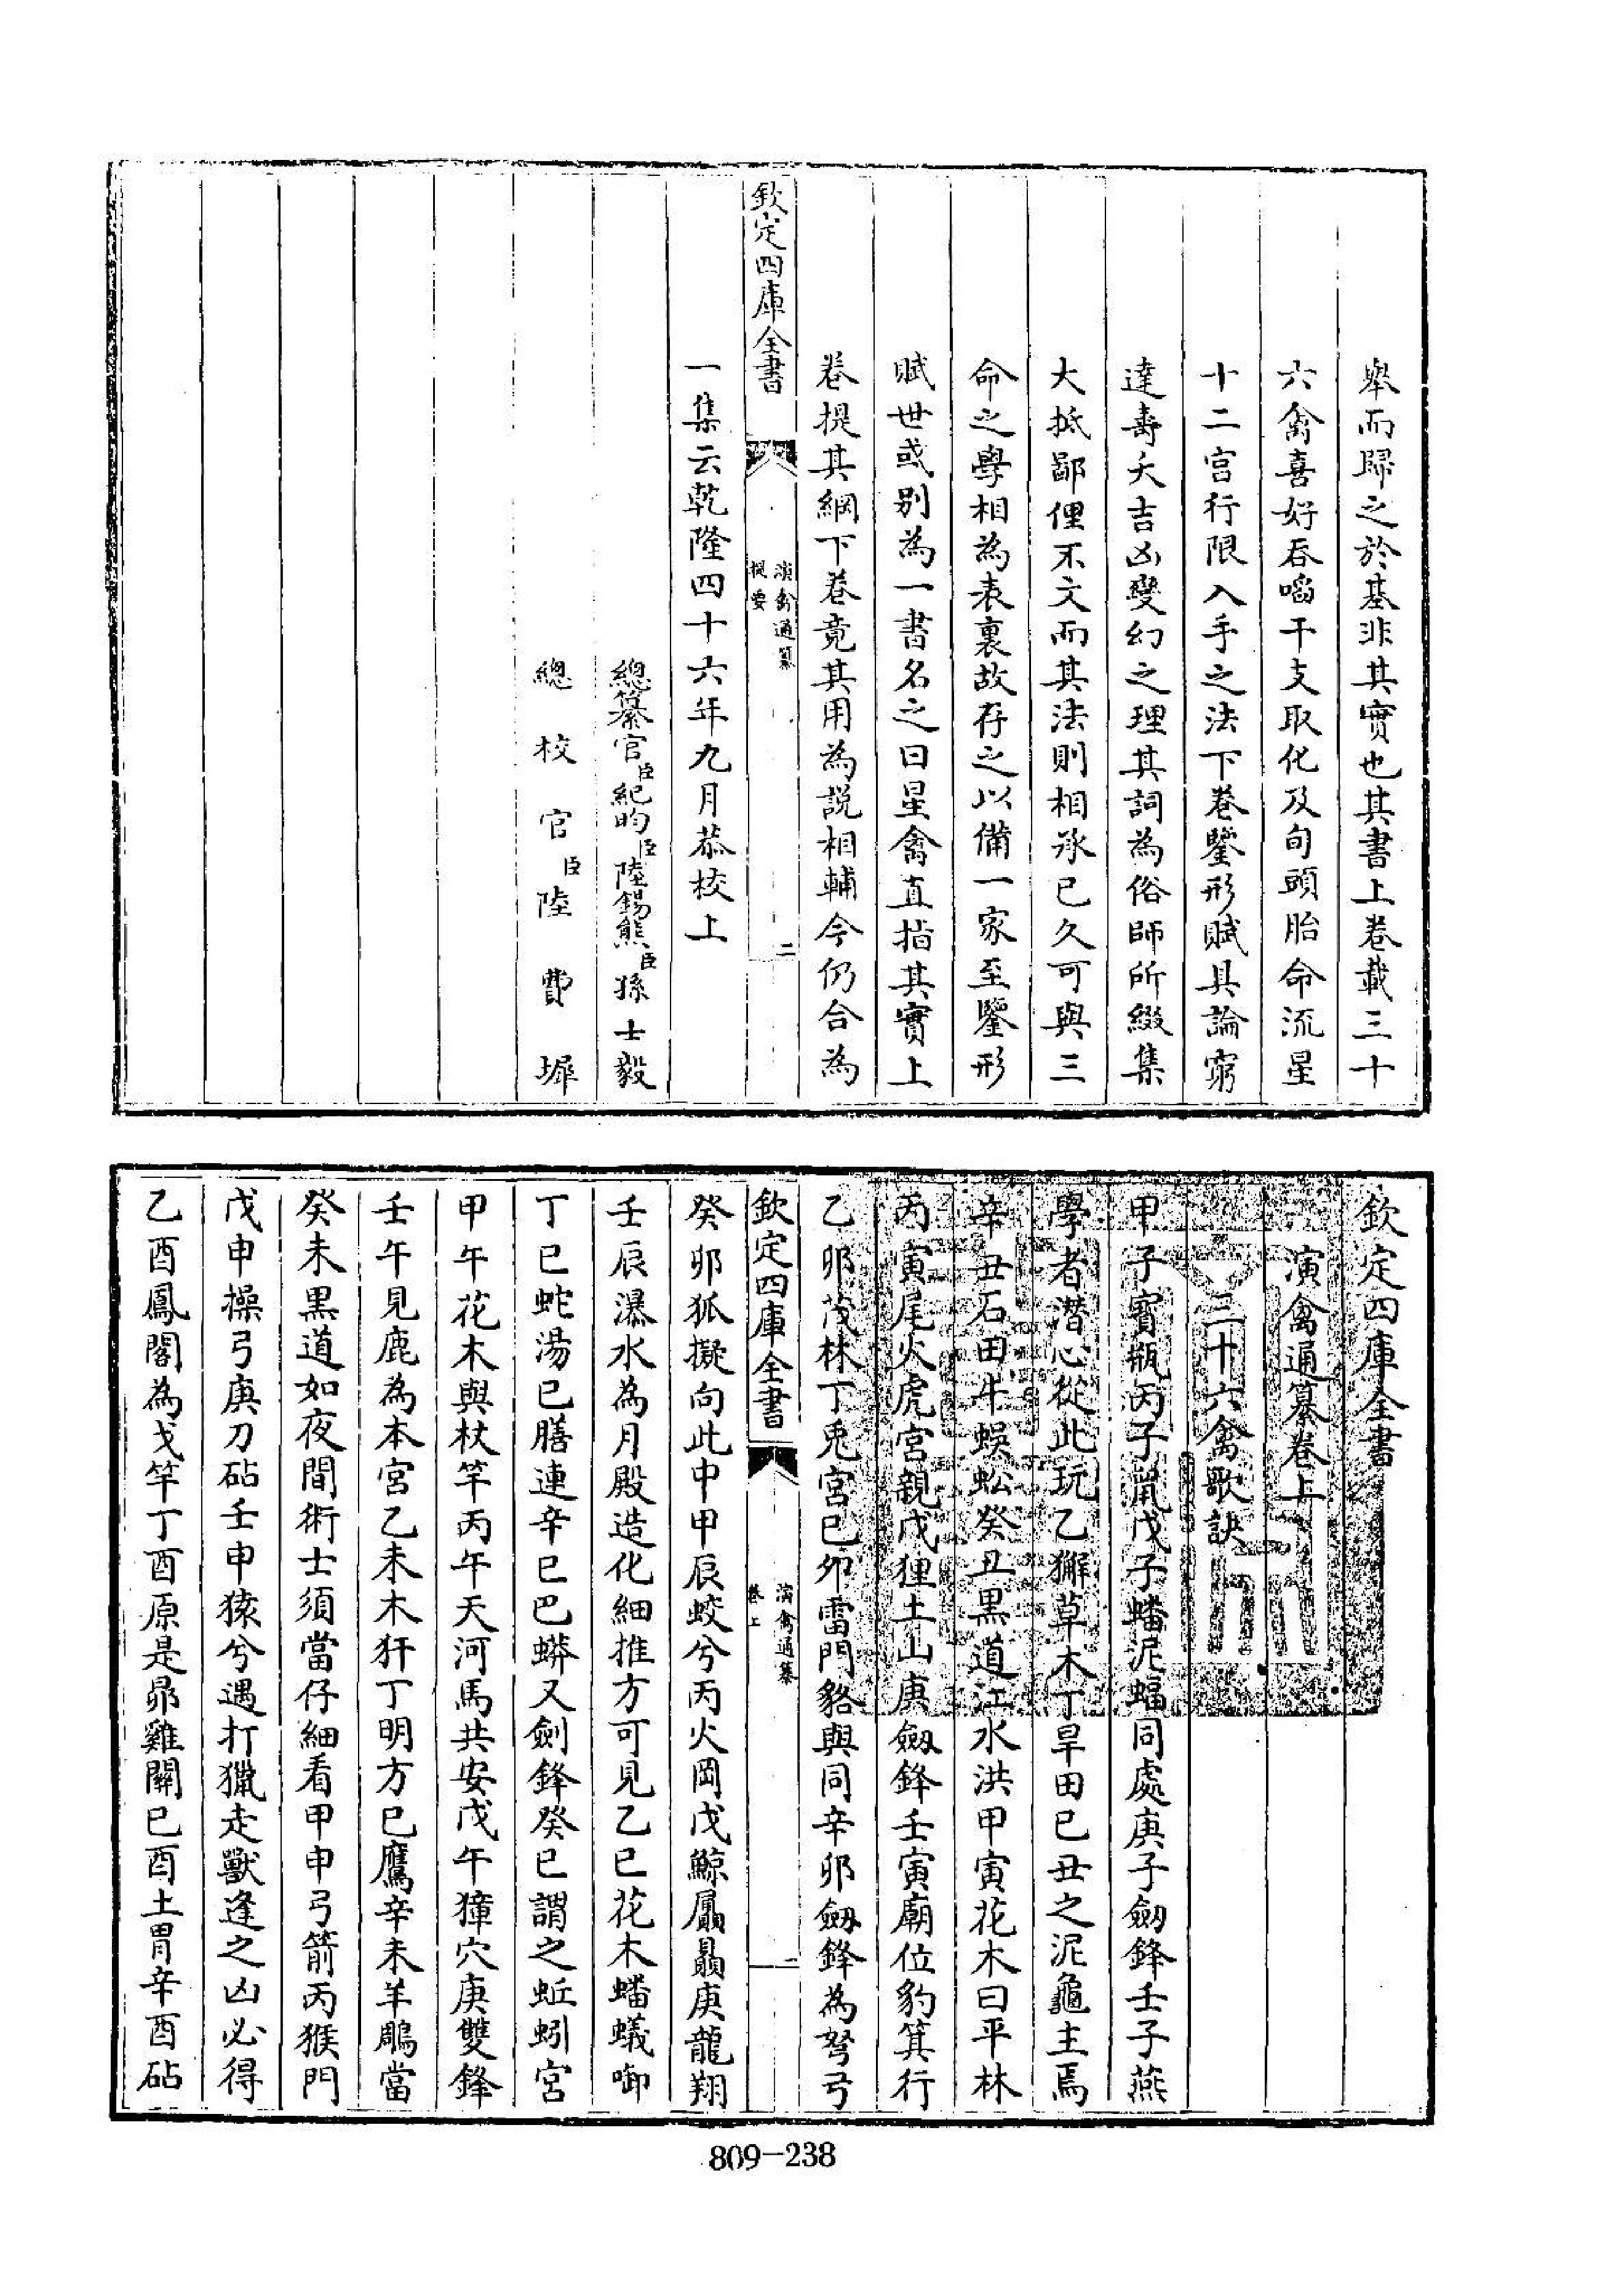 舉而歸之於基非其實也其書上卷載三十
六禽喜好吞啗干支取化及旬頭胎命流星
十二宫行限入手之法下卷鑒形賦具論窮
達壽夭吉凶變幻之理其詞為俗師所綴集
大抵鄙俚不文而其法則相承已久可與三
命之學相為表裏故存之以備一家至鑒形
賦世或别為一書名之曰星禽直指其實上
卷提其綱下卷竟其用為説相輔今仍合為
欽定四庫全書
演禽通纂
提要
二
一集云乾隆四十六年九月恭校上
總纂官臣紀昀臣陸錫熊臣孫士毅
總校官臣陸費墀
欽定四庫全書
演禽通纂卷上
三十六禽歌訣
甲子寳瓶丙子鼠戊子蟠泥蝠同處庚子劒鋒壬子燕
學者潛心從此玩乙獬草木丁旱田已丑之泥龜主焉
辛丑石田牛蜈蚣癸丑黒道江水洪甲寅花木曰平林
丙寅尾火虎宫親戊狸土山庚劒鋒壬寅廟位豹箕行
乙卯茂林丁兎宫已卯雷門貉與同辛卯劒鋒為弩弓
欽定四庫全書
演禽通纂
卷上
一
癸卯狐擬向此中甲辰蛟兮丙火岡戊鯨屭贔庚龍翔
壬辰瀑水為月殿造化細推方可見乙已花木蟠蟻啣
丁已蛇湯已膳連辛已巴蟒又劍鋒癸已謂之蚯蚓宫
甲午花木與杖竿丙午天河馬共安戊午獐穴庚雙鋒
壬午見鹿為本宫乙未木犴丁明方已鷹辛未羊鵰當
癸未黒道如夜間術士須當仔細看甲申弓箭丙猴門
戊申操弓庚刀砧壬申猿兮遇打獵走獸逢之凶必得
乙酉鳳閣為戈竿丁酉原是昴雞關已酉土胃辛酉砧
809-238